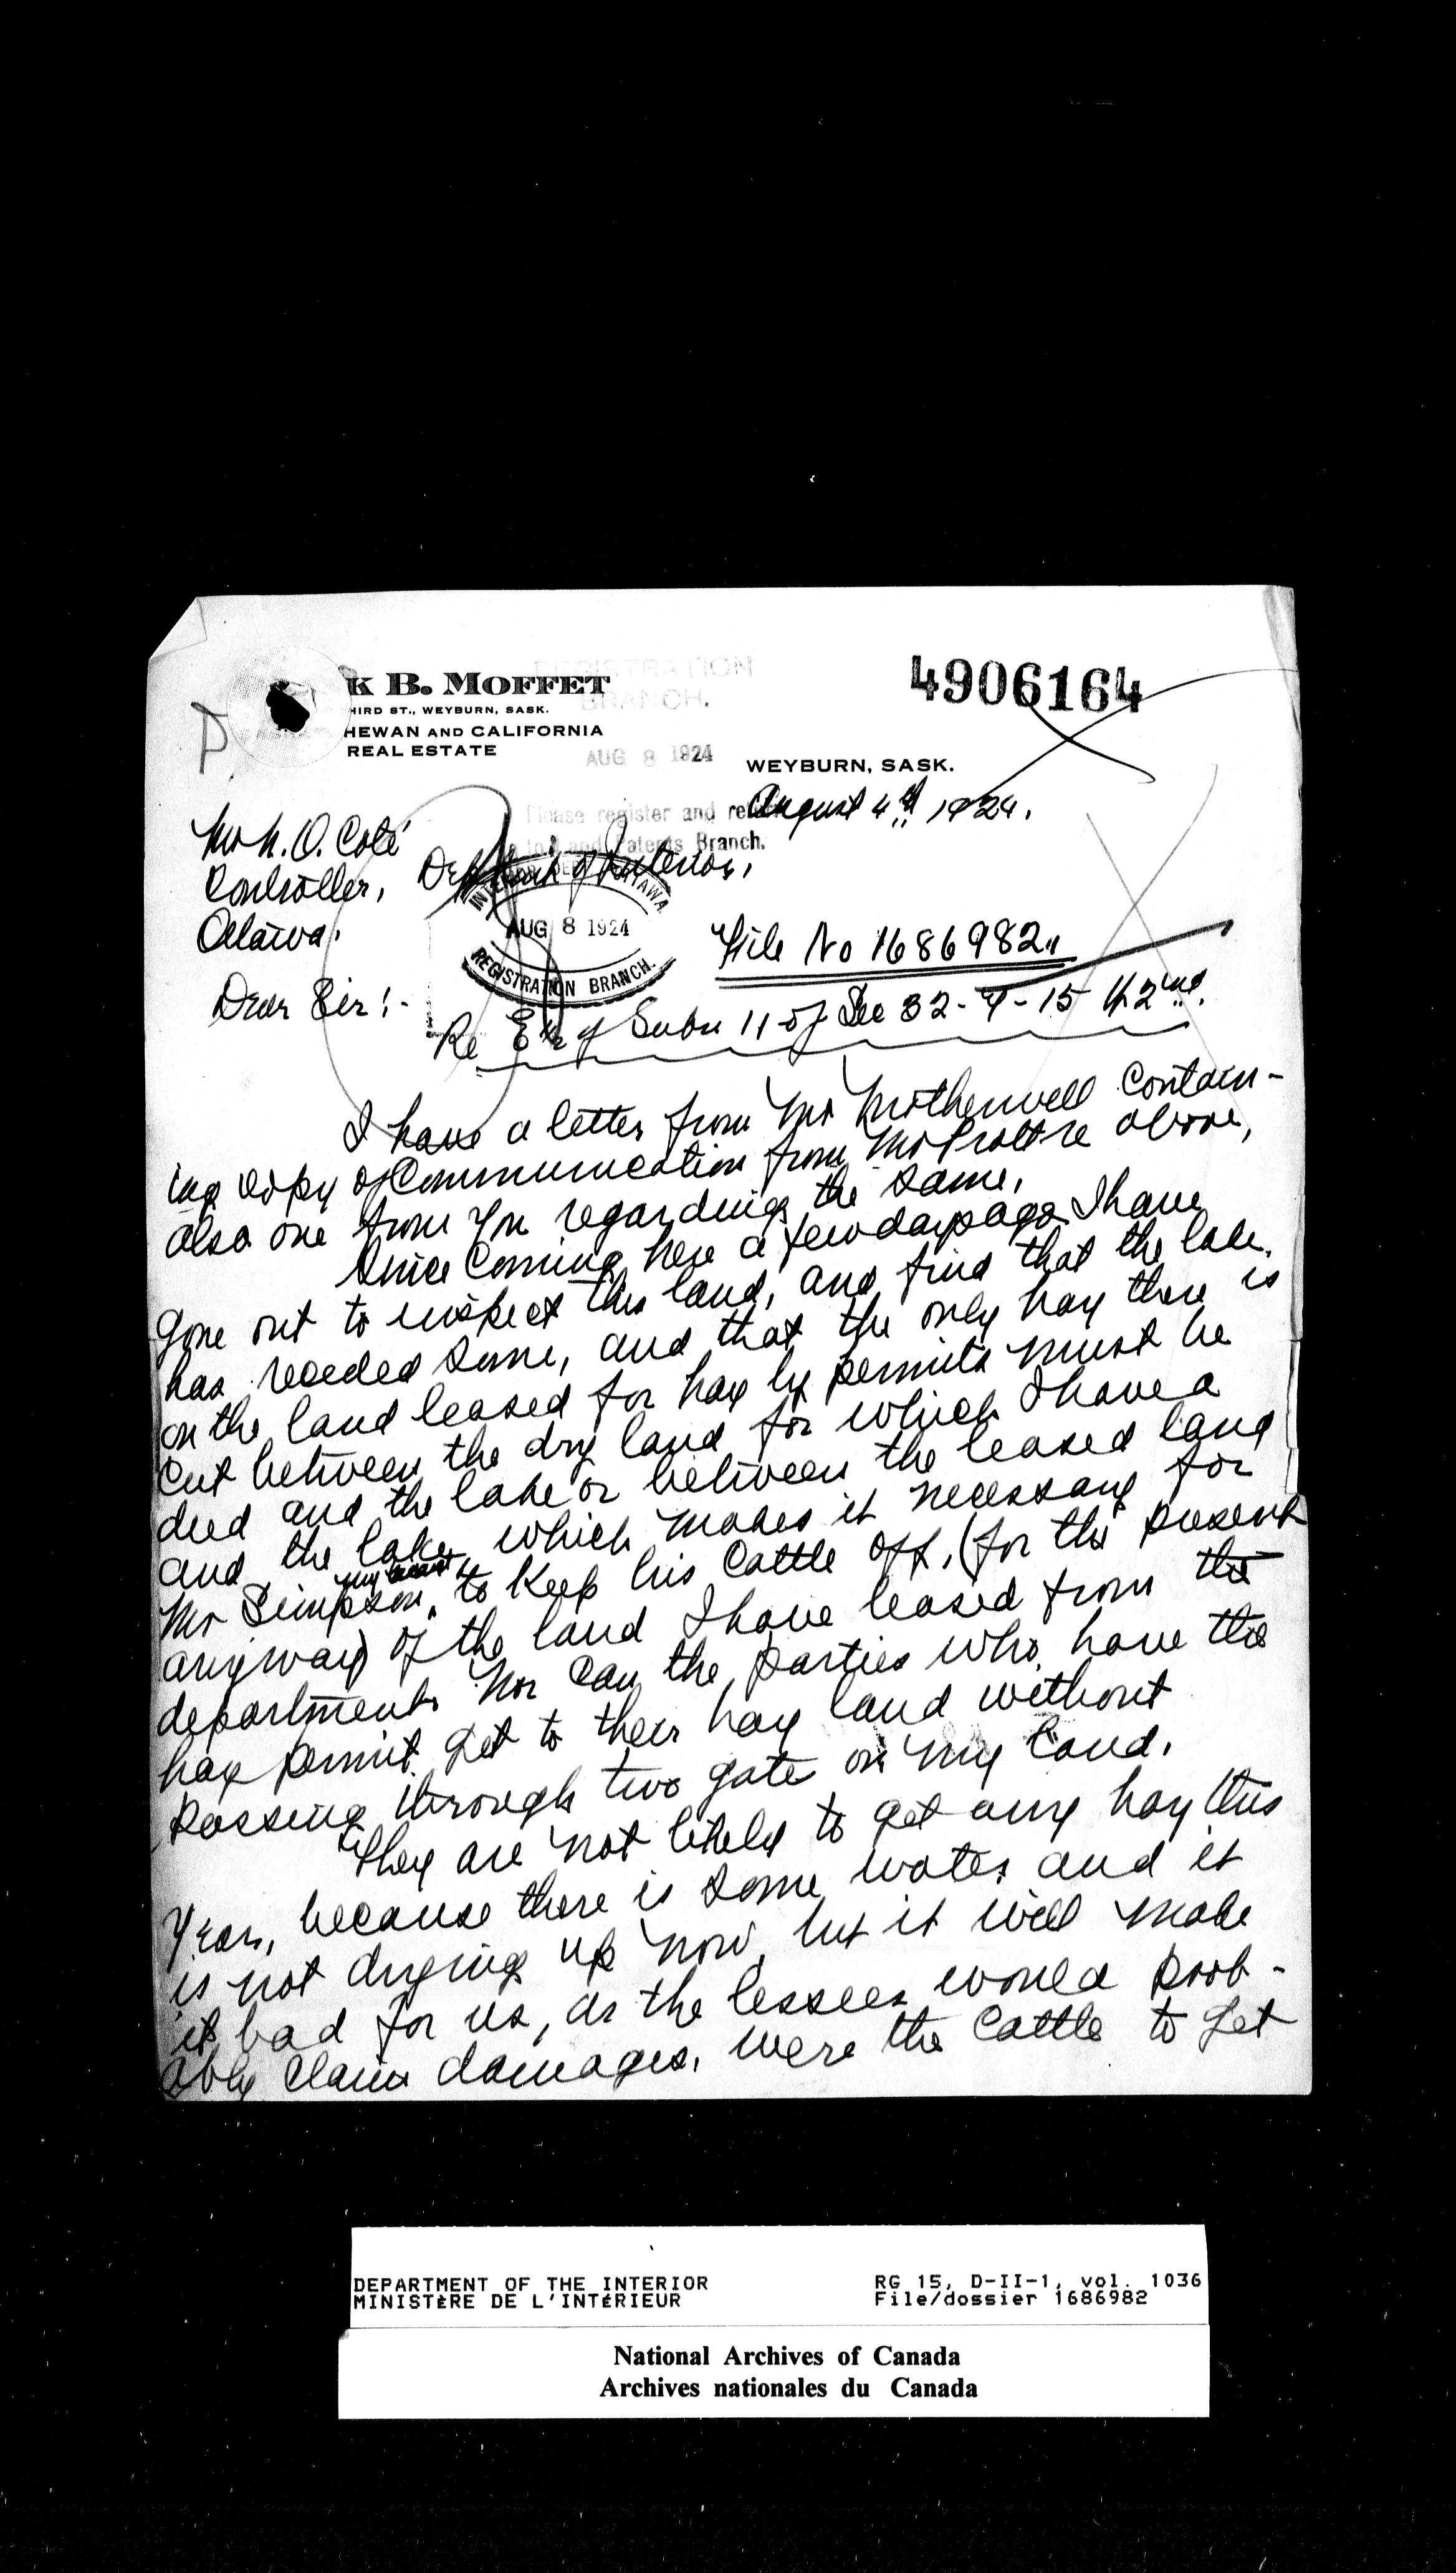 K B. MOFFET
HIRD ST., WEYBURN, SASK.
HEWAN AND CALIFORNIA
REAL ESTATE
REGISTRATION
BRANCH.
AUG 8 1924
4906164
WEYBURN, SASK.
August 4th 1924.
Please register and return
to Land Patents Branch.
Mr N. O. Coté
Controller, Department of Interior,
Ottawa.
INTERIOR DEPT. OTTAWA
AUG 8 1924
REGISTRATION BRANCH.
File No 1686982
Dear Sir:-
Re E½ of Subn 11 of Sec 32-7-15 W 2nd.
I have a letter from Mr Motherwell contain-
ing copy of Communication from Mr re above,
also one from you regarding the same.
Since Coming here a few days ago I have
gone out to inspect this land, and find that the lake
has receeded some, and that the only hay there is
on the land leased for hay by permits must be
cut between the dry land for which I have a
deed and the lake or between the leased land
and the lake, which makes it necessary for
Mr Simpson, my to keep his cattle off, (for the present
anyway) of the land I have leased from the
department. Nor can the parties who have the
hay permit get to their hay land without
passing through two gate on my land.
They are not likely to get any hay this
year, because there is some water and it
is not drying up now, but it will make
it bad for us, as the lessees would prob-
ably claim damages, were the cattle to get
DEPARTMENT OF THE INTERIOR
MINISTÈRE DE L'INTÉRIEUR
RG 15, D-II-1, vol. 1036
File/dossier 1686982
National Archives of Canada
Archives nationales du Canada